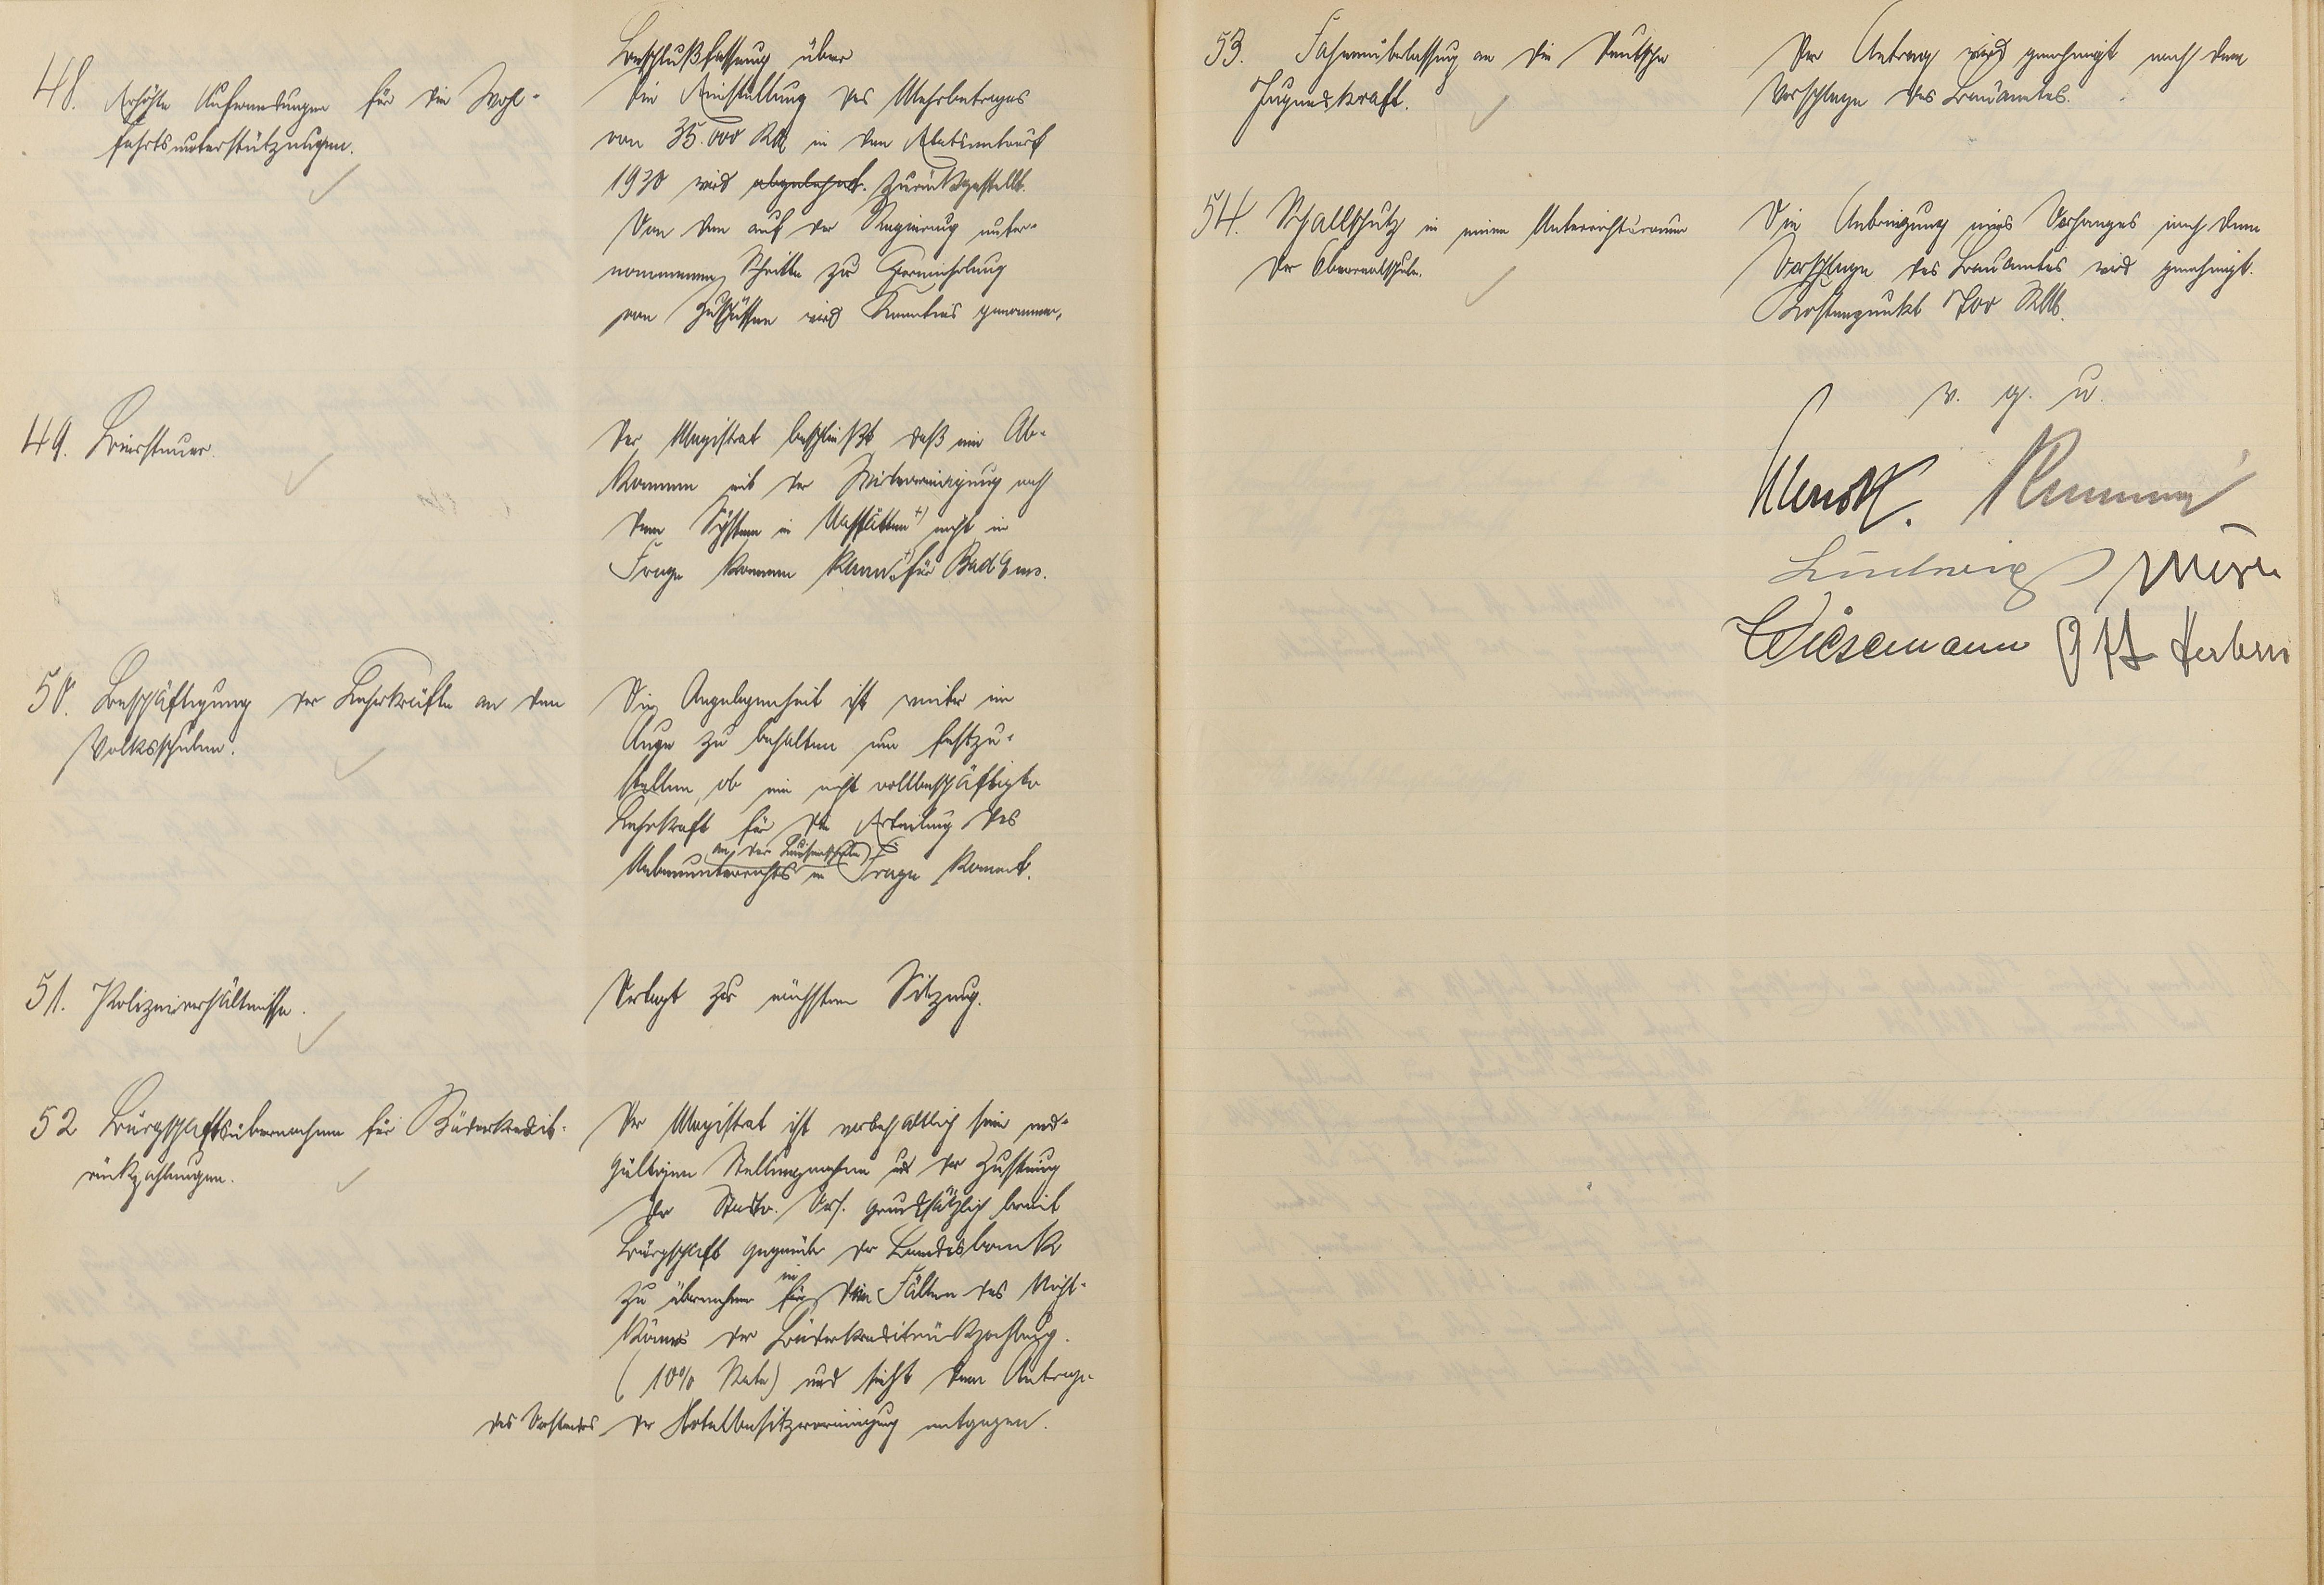 48. Erhöhte Aufwendungen für die Wohl-
fahrtsunterstützungen.
Beschlußfassung über
die Einstellung des Mehrbetrages
von 35.000 RM in den Etatsentwurf
1930 wird abgelehnt. zurückgestellt.
Von den auf der Regierung unter-
nommenen Schritte zur Hereinholung
von Zuschüssen wird Kenntnis genommen.
49. Biersteuer.
Der Magistrat beschließt daß ein Ab-
kommen mit der Wirtevereinigung nach
dem System in Nastätten +) nicht in
Frage kommen kann. +) für Bad Ems.
50. Beschäftigung der Lehrkräfte an den
Volksschulen.
Die Angelegenheit ist weiter im
Auge zu behalten um festzu-
stellen, ob eine nicht vollbeschäftigte
Lehrkraft für die Erteilung des
an der
Nebenunterrichts in Frage kommt.
51. Polizeiverhältnisse.
Vertagt zur nächsten Sitzung.
52 Bürgschaftsübernahme für Bäderkredit-
rückzahlungen.
Der Magistrat ist vorbehaltlich seiner end-
gültigen Stellungnahme und der Zustimmung
der Stadtv. Vers. grundsätzlich bereit
Bürgschaft gegenüber der Landesbank
zu übernehmen für in den Fällen des Nicht-
der Bäderkreditrückzahlung.
(10% Rate) und sieht dem Antrage
des Vorstandes der Hotelbesitzervereinigung entgegen.
53. Fahnenüberlassung an die Deutsche
Jugendkraft.
Der Antrag wird genehmigt nach dem
Vorschlage des Bauamtes.
54. Schallschutz in einem Unterrichtsraume
der Oberrealschule.
Die Anbringung eines Vorhanges nach dem
Vorschlage des Bauamtes wird genehmigt.
Kostenpunkt 700 RM.
v. g. u.
Ludwig
Wiesemann